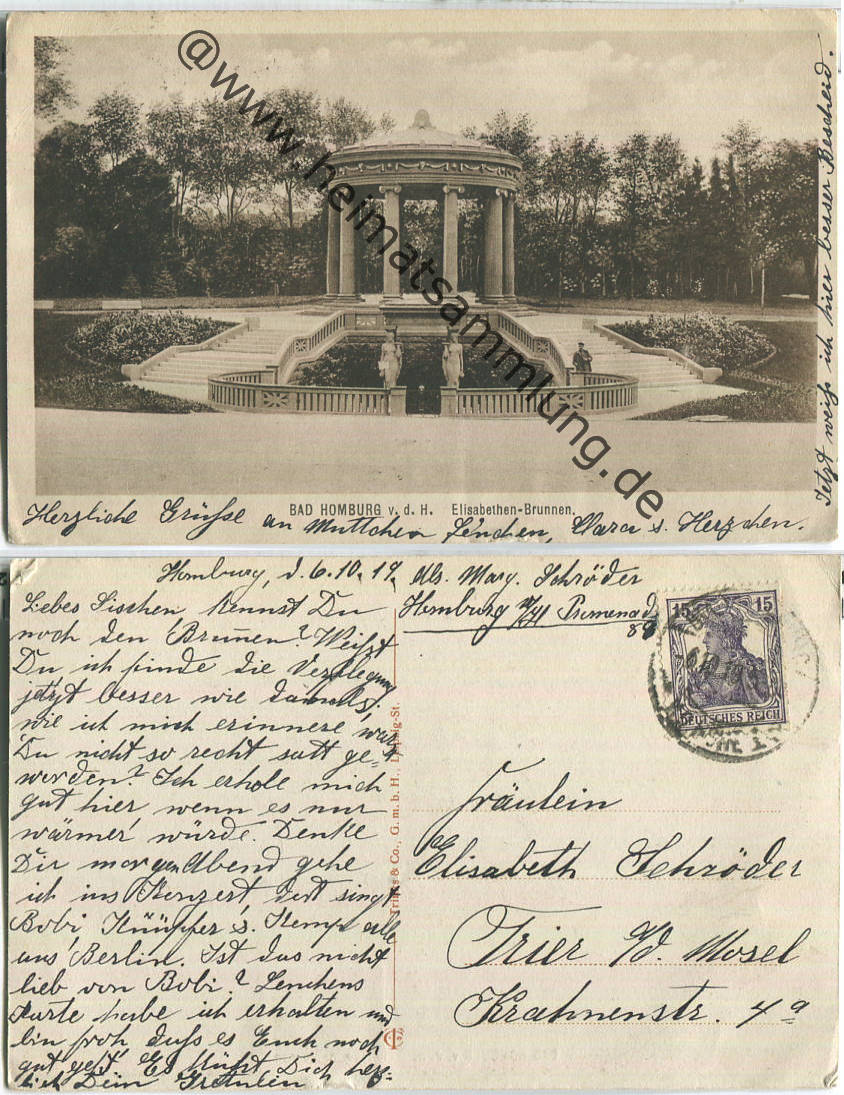 @www.heimatsammlung.de
Jetzt weiß ich hier besser Bescheid.
BAD HOMBURG v. d. H. Elisabethen-Brunnen.
Herzliche Grüße an Muttchen Lenchen, Clara u. Herzchen.
Homburg, d. 6.10.19.
Liebes Lischen kennst Du
noch den Brunnen? Weißt
Du ich finde die Verpflegung
jetzt besser wie damals,
wie ich mich erinnere, war
Du nicht so recht satt ge-
worden? Ich erhole mich
gut hier wenn es nur
wärmer würde. Denke
Dir morgen Abend gehe
ich ins Konzert, dort singt
Bobi, Knüpfer, Kemp alle
aus Berlin. Ist das nicht
lieb von Bobi? Lenchens
Karte habe ich erhalten und
bin froh daß es Euch noch
gut geht. Es küßt Dich herz-
lich Dein Gretulein
Trinks & Co., G. m. b. H., Leipzig-St.
Abs. Marg. Schröder
Homburg Promenad
89
15 15
DEUTSCHES REICH
Fräulein
Elisabeth Schröder
Trier a/d. Mosel
Krahnenstr. 4a